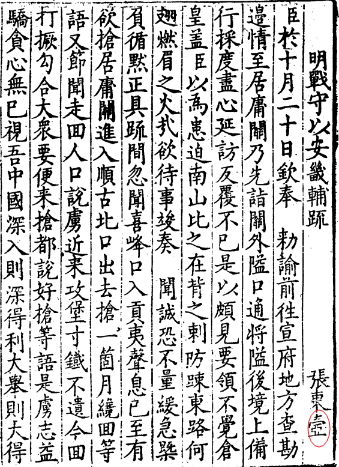 明戰守以安畿輔疏
張東壺
臣於十月二十日欽奉　勑諭前往宣府地方查勘
邊情至居庸關乃先詰關外隘口通將隘後境上備
行採度盡心延訪反覆不已是以頗見要領不覺倉
皇蓋臣以為患迫南山比之在背之刺防踈東路何
翅燃眉之火執欲待事竣奏　聞誠恐不量緩急槩
負循默正具疏間忽聞喜峰口入貢夷聲息已至有
欲搶居庸關進入順古北口出去搶一箇月纔囬等
語又節聞走囬人口說虜近來攻堡寸鐵不遺今囬
打撅勾合大衆要便來搶都說好搶等語是虜志益
驕貪心無已視吾中國深入則深得利大舉則大得